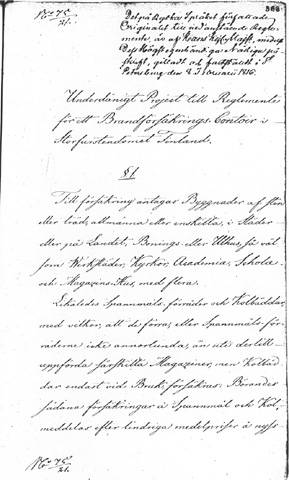 No 75/21.
568
Det på Ryska Språket författade
Originalet till nedanstående Regle-
mente är af Hans Kejs. Majt., medelst
Dess Högst egenhändiga Nådiga på-
skrift, gilladt och fastställt i St
Petersburg den 8 Januari 1816.
Underdånigt Project till Reglemente
för ett Brandförsäkrings Contoir i
Storfurstendömet Finland.
§ 1.
Till försäkring antagas Byggnader af sten
eller träd, allmänna eller enskilta, i Städer
eller på Landet, Bonings- eller Uthus så väl
som Verkstäder, Kyrkor, Academia, Schola-
och Magazins-Hus, med flera.
Likaledes Spannmåls-förråder och Kolbäddar,
med vilkor, att de förra, eller Spannmåls-för-
råderna icke annorstädes, än uti dertill
uppförda särskilta Magaziner, men Kolbäd
dar endast vid Bruk, försäkras. Börandes
sådana försäkringar å Spannmål och Kol,
meddelas efter lindriga medelpriser å nyss-
No 75/21.